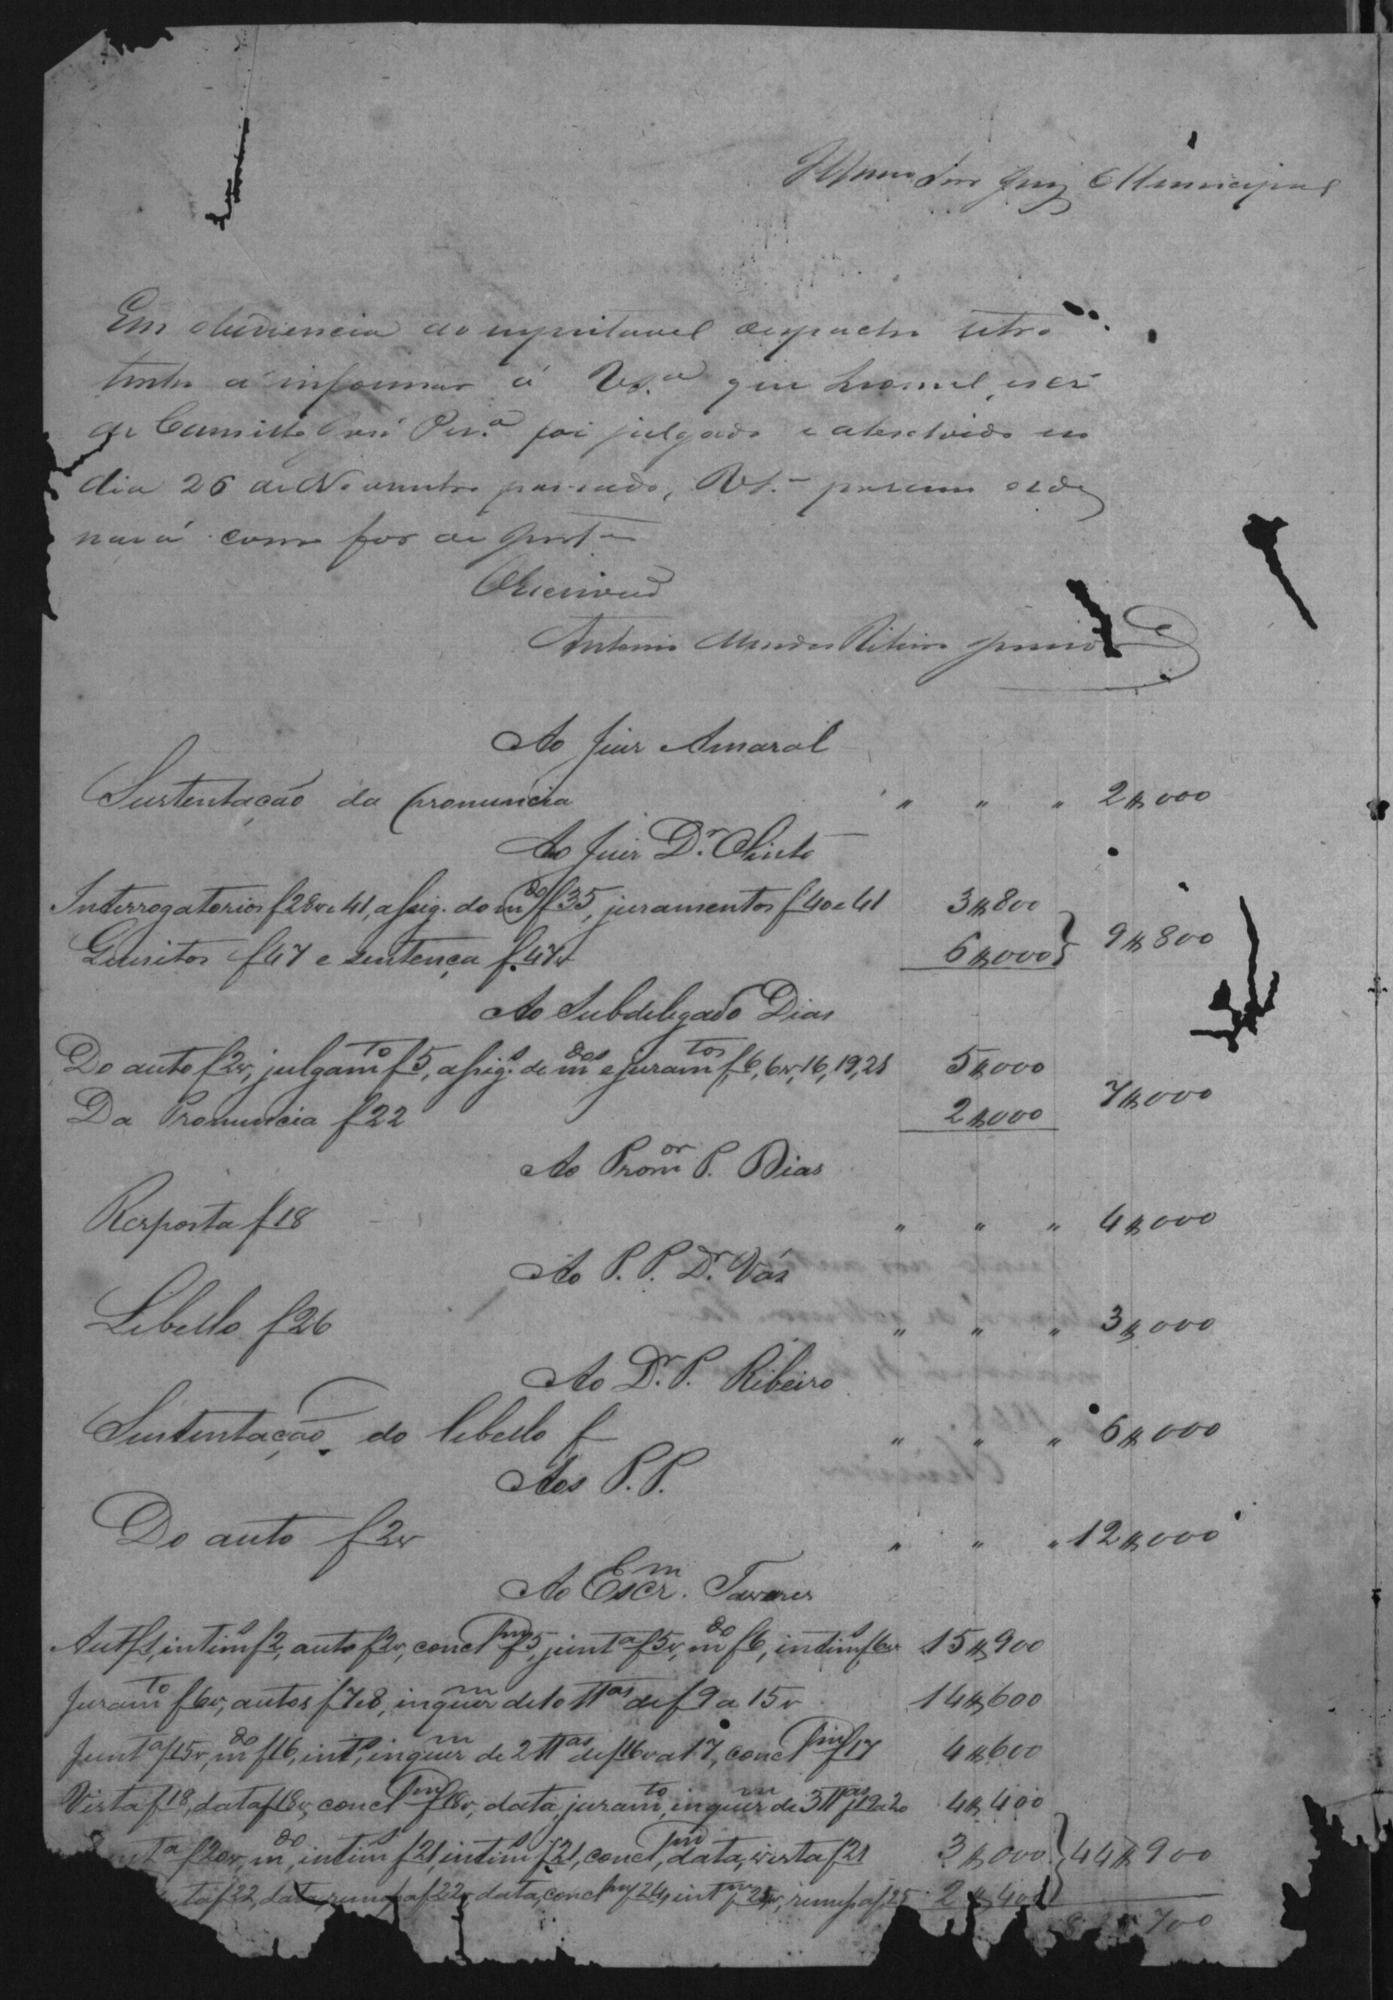 Illmo Snr Juiz Municipal
Em obediencia ao respeitavel despacho retro
tenho a informar á VSª que Leonel, escr
de Camillo José Perª foi julgado e absolvido no
dia 26 de Novembro passado, VS.ª porem orde
nará como for de justª
O Escrivão
Antonio Mendes Ribeiro Junior
Ao Juiz Amaral
Sustentação da pronuncia " " " 2$000
Ao Juiz Dr. Olinto
Interrogatorios f 28v e 41, assig. do mdo f 35, juramentos f 40 e 41 3$800
Quisitos f 47 e sentença f. 47v 6$000 } 9$800
Ao Subdelegado Dias
Do auto f 2v, julgamto f 5, assigs. de mdos e juramtos f 6, 6v, 16, 19, 21 5$000
Da Pronuncia f 22 2$000 7$000
Ao Promor P. Dias
Resposta f 18 " " " 4$000
Ao P. P. Dr. Vás
Libello f 26 " " " 3$000
Ao Dr. P. Ribeiro
Sustentação do libello f " " " 6$000
Aos P. P.
Do auto f 2v " " " 12$000
Ao Escrm. Tavares
Aut f 1, intims f 2, auto f 2v, conclm f 5, junta f 5v, mdo f 6, intims f 6v 15$900
Juramto f 6v, autos f 7 e 8, inquerm de 10 ttas de f 9 a 15v 14$600
Junta f 15v, mdo f 16, ints, inquerm de 2 ttas de f 16v a 17, conclm f 17 4$600
Vista f 18, data f 18v, conclm f 18v, data, juramto, inquerm de 3 ttas f 19 a 20 4$400
Junta f 20v, mdo, intims f 21, intims f 21, conclm, data, vista f 21 3$000 } 44$900
f 22, data, remessa f 22v, data, conclm f 24, intm f 25v, remessa f 25 2$400
700